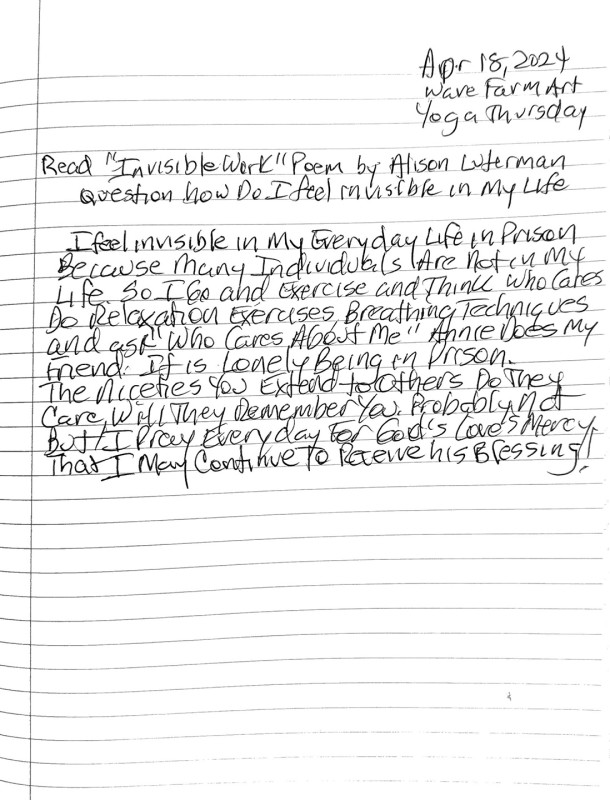 Apr 18, 2024
Wave Farm Art
Yoga Thursday
Read "Invisible Work" Poem by Alison Luterman
Question how Do I feel invisible in My Life
I feel invisible in My Everyday Life in Prison
Because Many Individuals Are Not in My
Life. So I Go and Exercise and Think Who Cares
Do Relaxation Exercises, Breathing Techniques
and ask "Who Cares About Me" Annie Does My
Friend. It is Lonely Being in Prison.
The Niceties You Extend to Others Do They
Care, Will They Remember You. Probably Not
But I Pray Everyday For God's Love & Mercy
That I May Continue To Receive his Blessing!